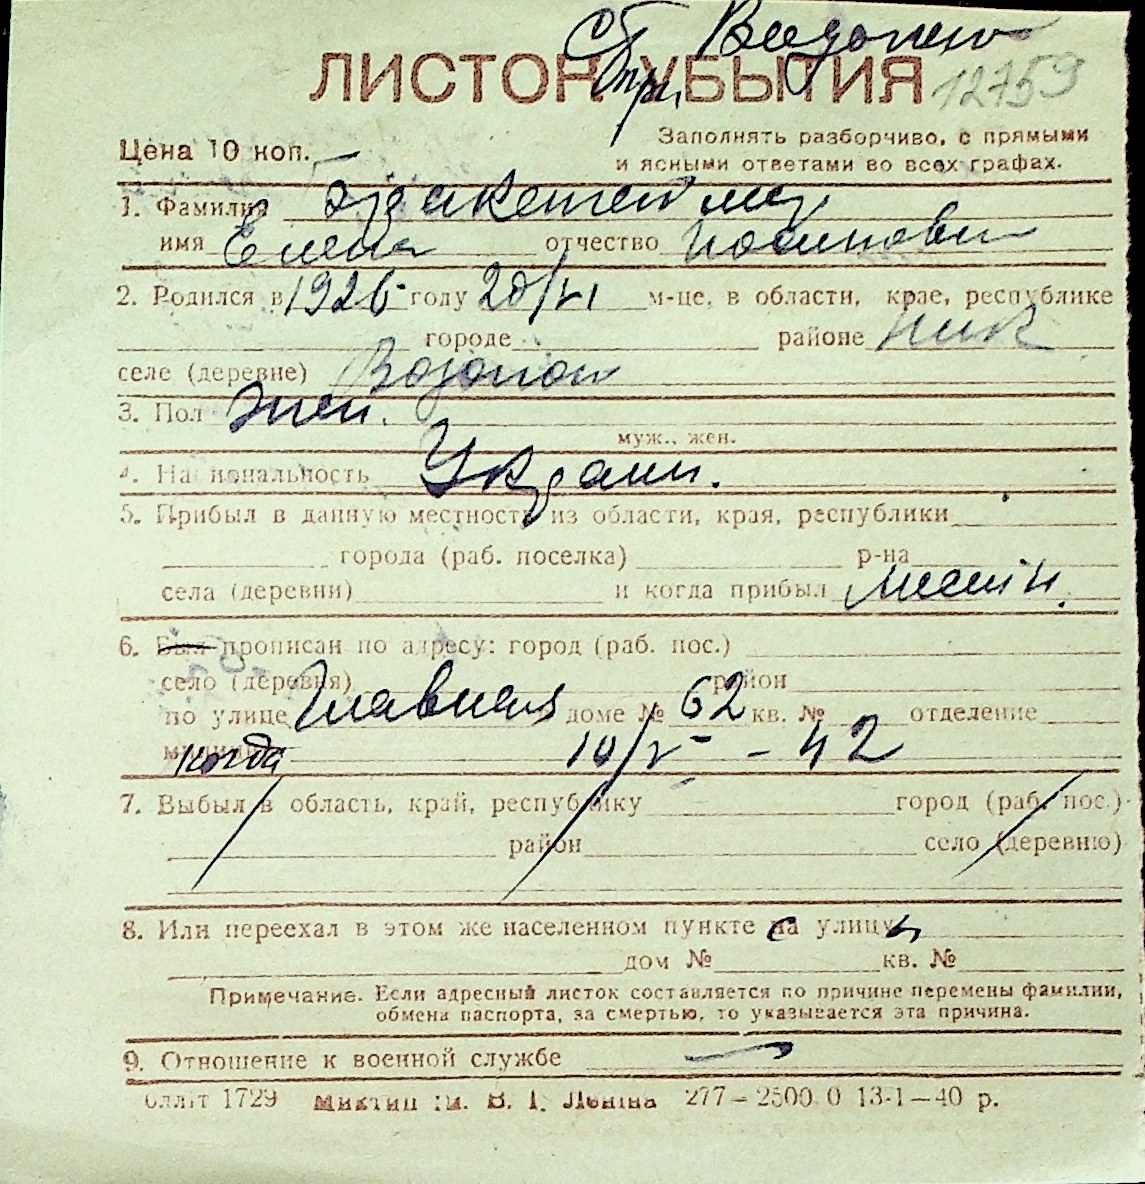 Ст Водопой
12759
ЛИСТОК УБЫТИЯ
Цена 10 коп.
Заполнять разборчиво, с прямыми
и ясными ответами во всех графах.
1. Фамилия
имя Елена отчество
2. Родился в 1926 году 20/VI м-це, в области, крае, республике
городе районе Ник
селе (деревне) Водопой
3. Пол жен.
муж., жен.
4. Национальность Украин.
5. Прибыл в данную местность из области, края, республики
города (раб. поселка) р-на
села (деревни) и когда прибыл местн.
6. Был прописан по адресу: город (раб. пос.)
село (деревня) район
по улице Главная доме № 62 кв. № отделение
когда 10/V - 42
7. Выбыл в область, край, республику город (раб. пос.)
район село (деревню)
8. Или переехал в этом же населенном пункте на улицу
дом № кв. №
Примечание. Если адресный листок составляется по причине перемены фамилии,
обмена паспорта, за смертью, то указывается эта причина.
9. Отношение к военной службе
1729 им. В. І. Леніна 277—2500.0 13-1—40 р.